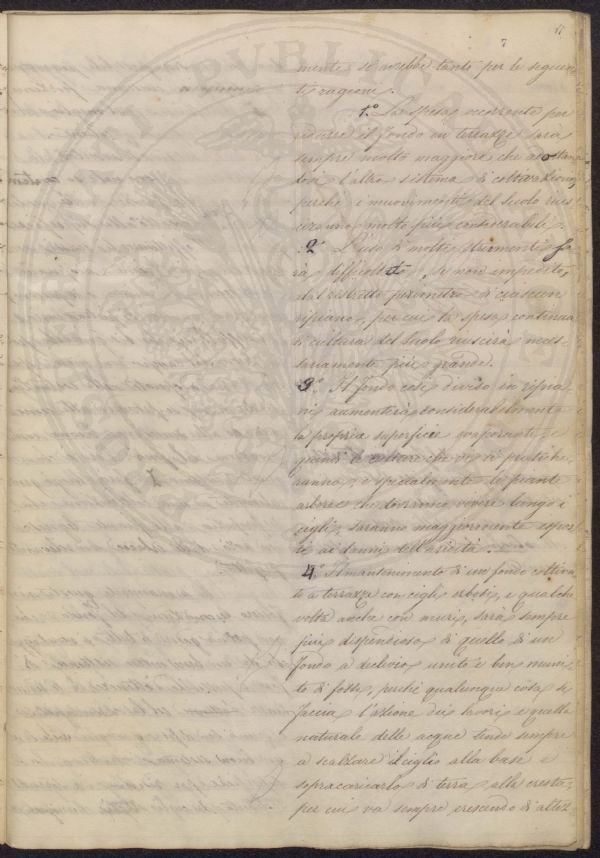 7
mente si avrebbe tanto per le seguen-
ti ragioni.
1.° La spesa occorrente per
ridurre il fondo in terrazze sarà
sempre molto maggiore che adottan
dosi l'altro sistema di coltivazione
perché i muovimenti del suolo ries
ciranno molto più considerabili.
2.° L'uso di molti strumenti sa
rà difficoltato, se non impedito,
dal ristretto perimetro di ciascun
ripiano, per cui la spesa continua
di cultura del suolo riuscirà neces-
sariamente più grande.
3.° Il fondo così diviso in ripia
ni aumenterà considerabilmente
la propria superficie evaporante, e
quindi le colture che vi si pratiche
ranno, e specialmente le piante
arboree che dovranno vivere lungo i
cigli, saranno maggiormente espos
te ai danni dell'aridità.
4.° Il mantenimento di un fondo coltiva
to a terrazze con cigli erbosi, e qualche
volta anche con muri, sarà sempre
più dispendioso di quello di un
fondo a declivio unito e ben muni
to di fosse, perché qualunque cosa si
faccia l'azione dei lavori e quella
naturale delle acque tende sempre
a scalzare il ciglio alla base e
sopracaricarlo di terra alla cresta,
per cui va sempre crescendo di altez